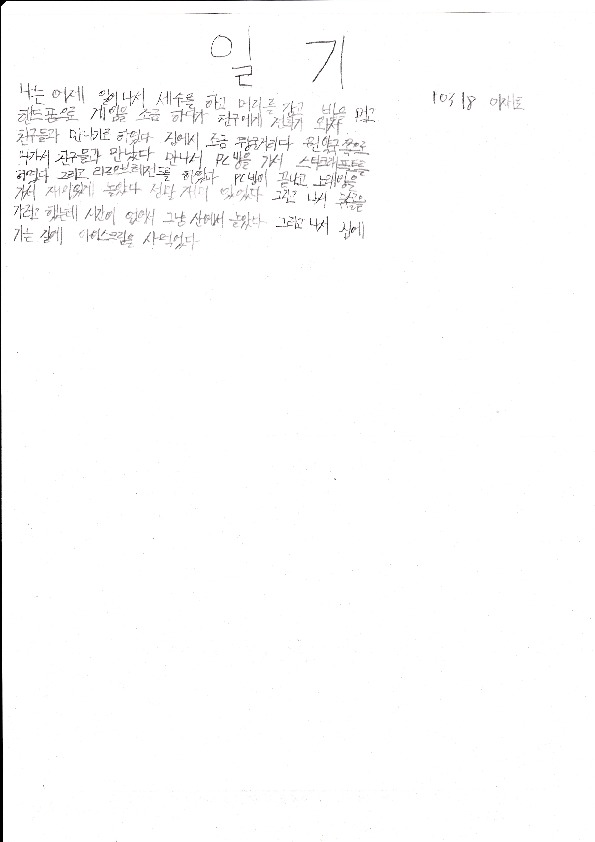 일 기
10318 이재호
나는 어제 일어나서 세수를 하고 머리를 감고 밥을 먹고
핸드폰으로 게임을 조금 하다가 친구에게 전화가 와서
친구들과 만나기로 하였다 집에서 조금 뒹굴거리다 쪽으로
가서 친구들과 만났다 만나서 PC방을 가서 스타크래프트를
하였다 그리고 를 하였다 PC방이 끝나고 노래방을
가서 재미있게 놀았다 정말 재미 있었다 그리고 나서
가려고 했는데 시간이 없어서 그냥 산에서 놀았다 그리고 나서 집에
가는 길에 아이스크림을 사먹었다